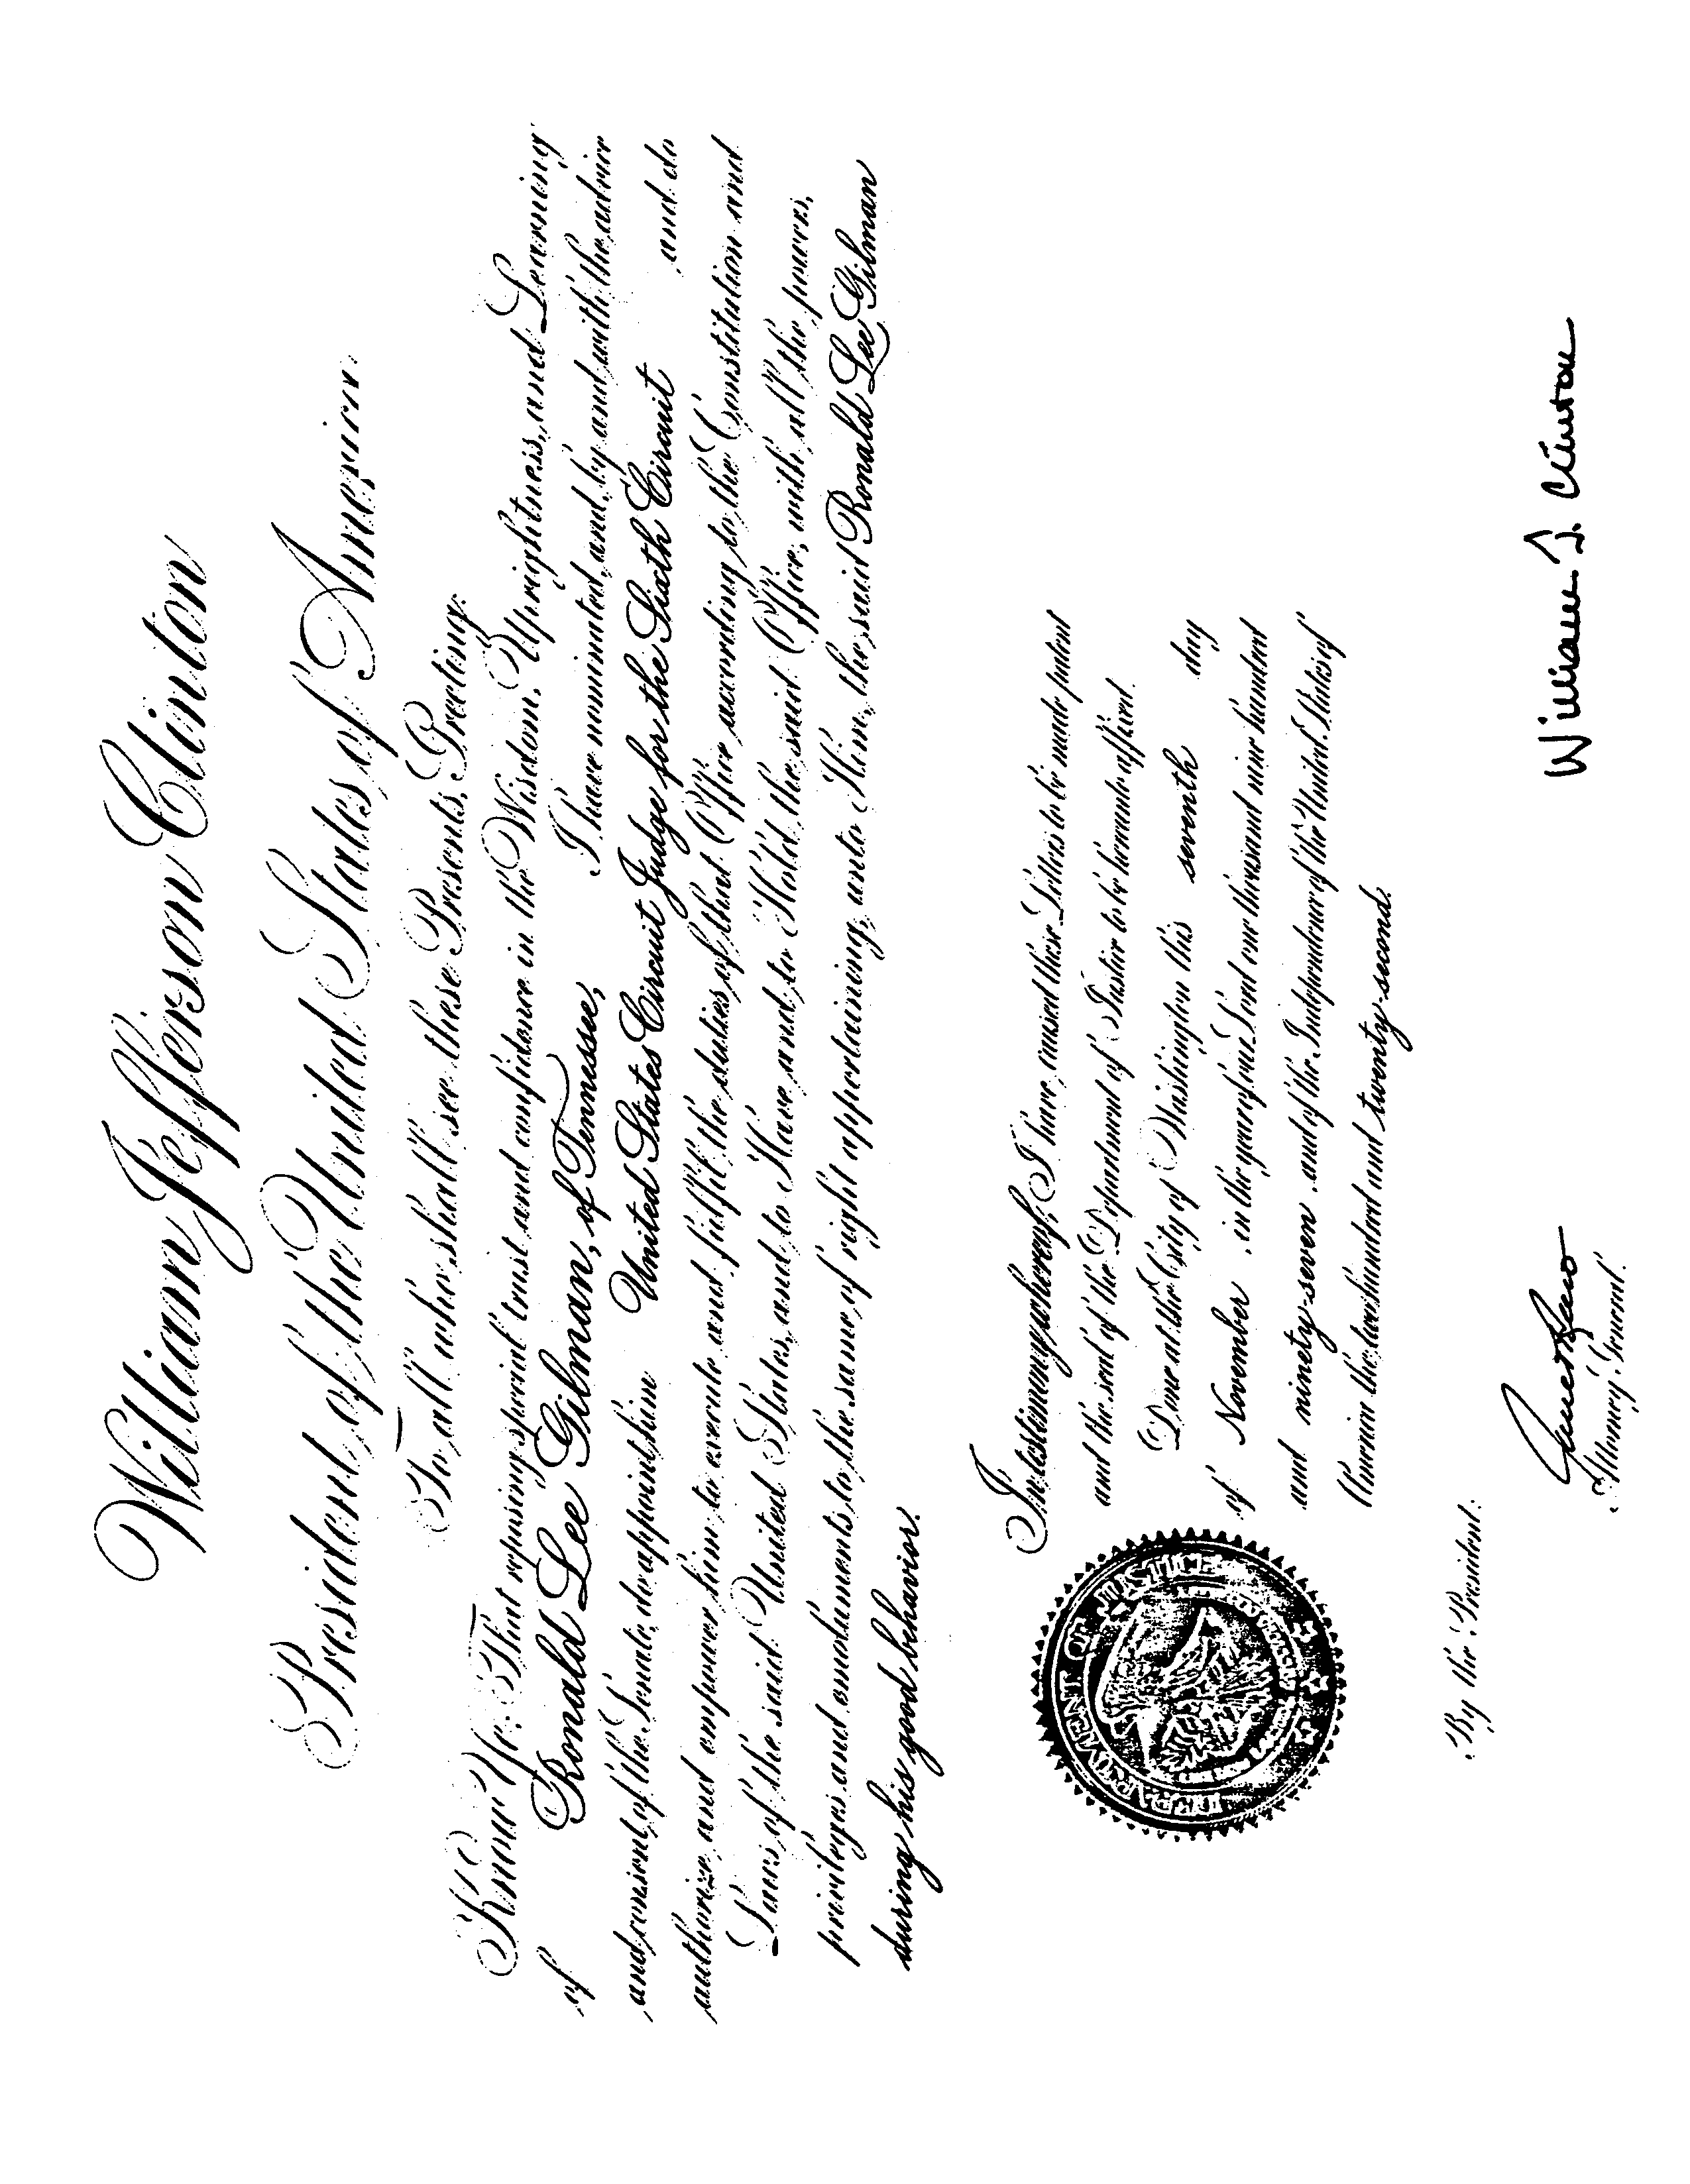 William Jefferson Clinton
President of the United States of America.
To all who shall see these Presents, Greeting:
Know Ye: That reposing special trust and confidence in the Wisdom, Uprightness, and Learning
of Ronald Lee Gilman, of Tennessee, I have nominated, and, by and with the advice
and consent of the Senate, do appoint him United States Circuit Judge for the Sixth Circuit and do
authorize and empower him to execute and fulfil the duties of that Office according to the Constitution and
Laws of the said United States, and to Have and to Hold the said Office, with all the powers,
privileges and emoluments to the same of right appertaining, unto Him, the said Ronald Lee Gilman
during his good behavior.
In testimony whereof, I have caused these Letters to be made patent
and the seal of the Department of Justice to be hereunto affixed.
Done at the City of Washington this seventh day
of November, in the year of our Lord one thousand nine hundred
and ninety-seven, and of the Independence of the United States of
America the two hundred and twenty-second.
DEPARTMENT OF JUSTICE
William J. Clinton
By the President:
Janet Reno
Attorney General.